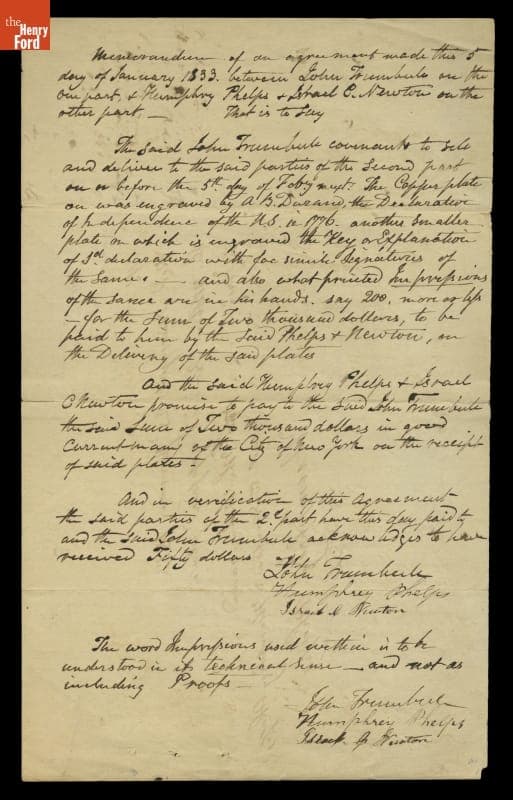 the
Henry
Ford
Memorandum of an agreement made this 5
day of January 1833. between John Trumbull on the
one part, & Humphrey Phelps & Israel C. Newton on the
other part, — That is to say
The said John Trumbull covenants to sell
and deliver to the said parties of the Second part
on or before the 5th day of Feby next. The Copper plate
on was engraved by A B. Durand, the Declaration
of Independence of the U.S. in 1776. another smaller
plate on which is engraved the Key or Explanation
of sd. declaration with fac simile Signatures of
the same. — and also what printed Impressions
of the same are in his hands. say 200. more or less
— for the Sum of Two thousand dollars, to be
paid to him by the said Phelps & Newton, on
the Delivery of the said plates
And the said Humphrey Phelps & Israel
C Newton promise to pay to the said John Trumbull
the said Sum of Two thousand dollars in good
current money of the City of New York on the receipt
of said plates.
And in verification of this Agreement
the said parties of the 2d. part have this day paid
and the said John Trumbull acknowledges to have
received Fifty dollars
John Trumbull
Humphrey Phelps
Israel Newton
The word Impressions used within is to be
understood in its technical sense — and not as
including Proofs —
John Trumbull
Humphrey Phelps
Newton